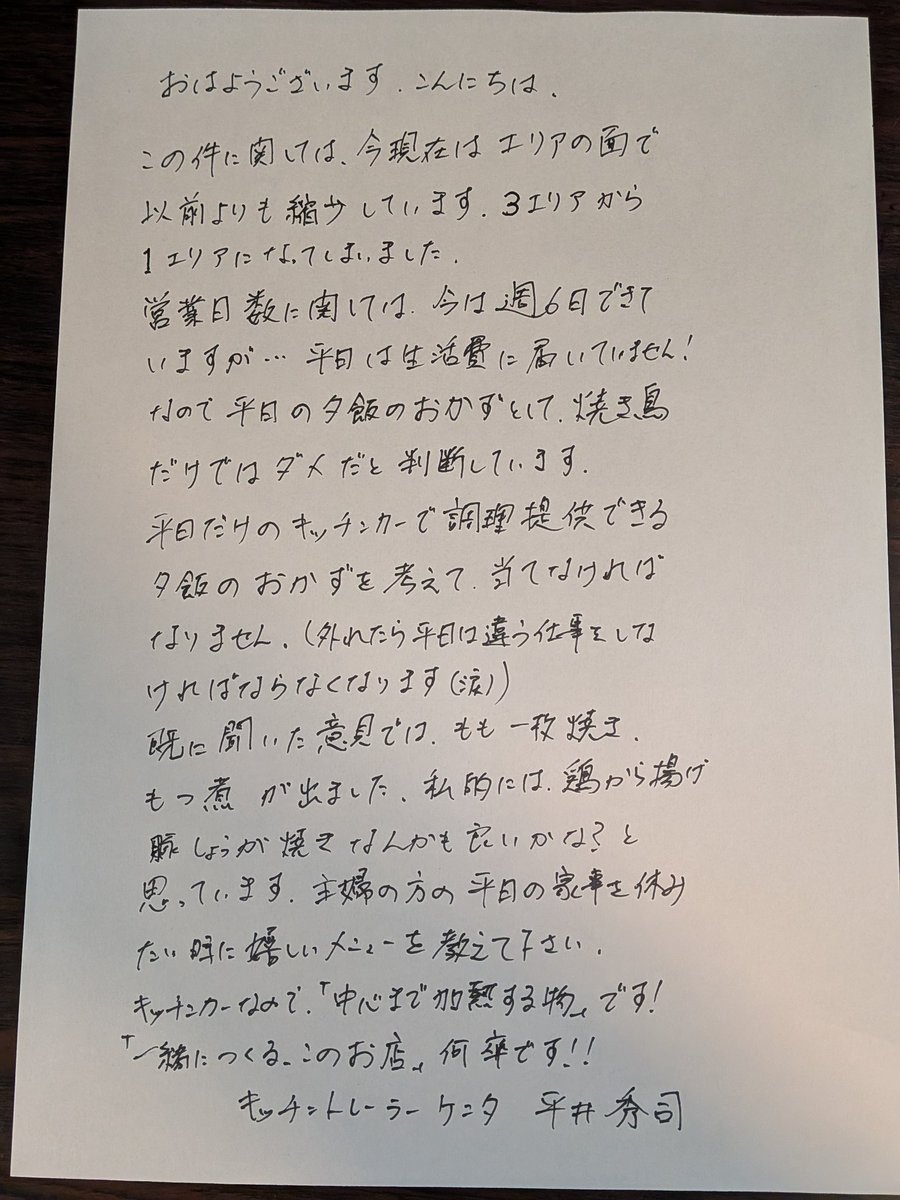 おはようございます.こんにちは.
この件に関しては、今現在はエリアの面で
以前よりも縮少しています.3エリアから
1エリアになってしまいました.
営業日数に関しては.今は週6日できて
いますが…平日は生活費に届いていません!
なので平日の夕飯のおかずとして.焼き鳥
だけではダメだと判断しています.
平日だけのキッチンカーで調理提供できる
夕飯のおかずを考えて.当てなければ
なりません.(外れたら平日は違う仕事をしな
ければならなくなります(涙))
既に聞いた意見では.もも一枚焼き.
もつ煮が出ました.私的には.鶏から揚げ
しょうが焼きなんかも良いかな?と
思っています.主婦の方の平日の家事を休み
たい時に嬉しいメニューを教えて下さい.
キッチンカーなので.「中心まで加熱する物」です!
「一緒につくる、このお店」何卒です!!
キッチントレーラーケンタ 平井秀司